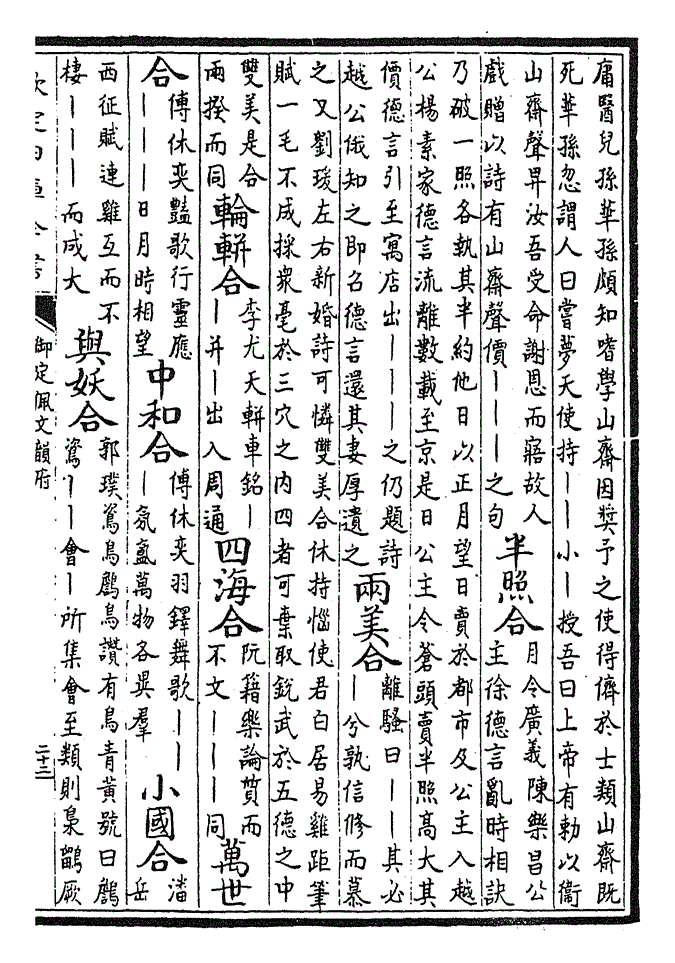 庸醫兒孫華孫頗知嗜學山齋因奬予之使得儕於士類山齋既
死華孫忽謂人曰嘗夢天使持｜｜小｜授吾曰上帝有勅以衞
山齋聲昇汝吾受命謝恩而寤故人
戲贈以詩有山齋聲價｜｜｜之句
半照合
月令廣義陳樂昌公
主徐德言亂時相訣
乃破一照各執其半約他日以正月望日賣於都市及公主入越
公楊素家德言流離數載至京是日公主令蒼頭賣半照高大其
價德言引至寓店出｜｜｜之仍題詩
越公俄知之即召德言還其妻厚遺之
兩美合
離騷曰｜｜其必
｜兮孰信修而慕
之又劉瑗左右新婚詩可憐雙美合休持惱使君白居易雞距筆
賦一毛不成採衆毫於三穴之内四者可棄取銳武於五德之中
雙美是合
兩揆而同
輪輧合
李尤天輧車銘｜
｜并｜出入周通
四海合
阮籍樂論質而
不文｜｜｜同
萬世
合
傅休奕豔歌行靈應
｜｜｜日月時相望
中和合
傅休奕羽鐸舞歌｜｜
｜氛氳萬物各異羣
小國合
潘
岳
西征賦連雞互而不
棲｜｜｜而成大
與妖合
郭璞鴍鳥鳥讚有鳥青黃號曰
鴍｜｜會｜所集會至類則梟鶹厥
欽定四庫全書
御定佩文韻府
二十三